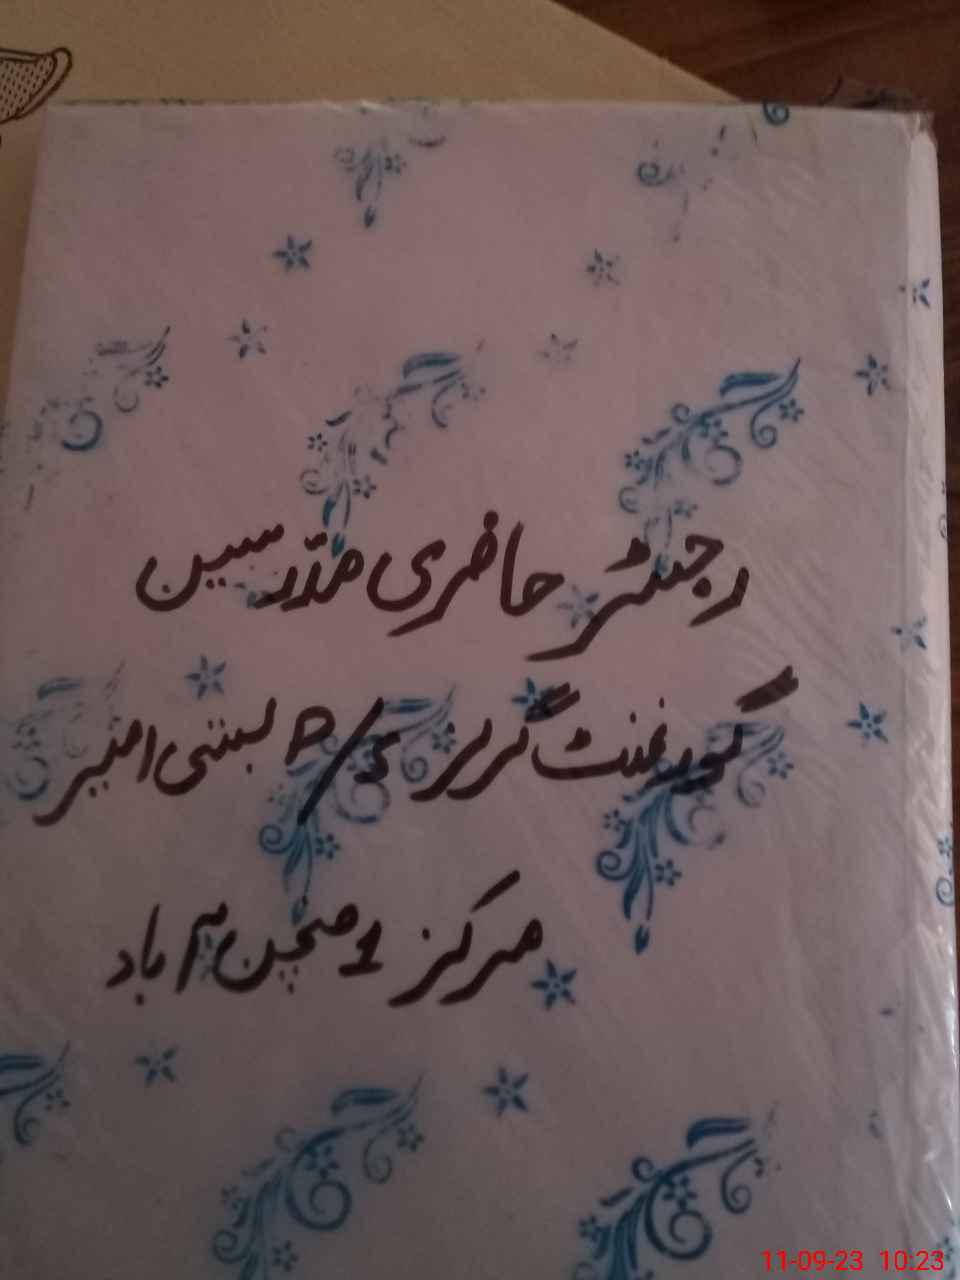 رجسٹر حاضری مدّرسین
گورنمنٹ گرلز P/S بستی امیر
مرکز 1 منچن آباد
11-09-23 10:23